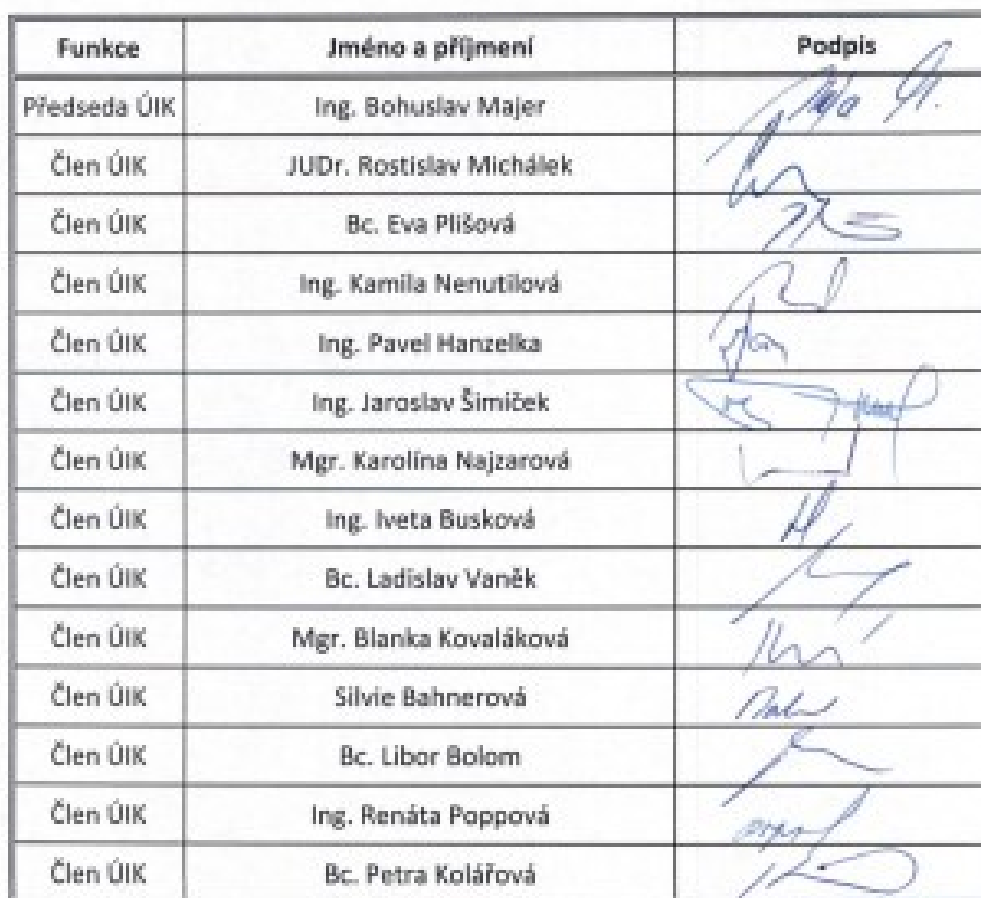 Funkce Jméno a příjmení Podpis
Předseda ÚIK Ing. Bohuslav Majer
Člen ÚIK JUDr. Rostislav Michálek
Člen ÚIK Bc. Eva Plišová
Člen ÚIK Ing. Kamila Nenutilová
Člen ÚIK Ing. Pavel Hanzelka
Člen ÚIK Ing. Jaroslav Šimíček
Člen ÚIK Mgr. Karolína Najzarová
Člen ÚIK Ing. Iveta Busková
Člen ÚIK Bc. Ladislav Vaněk
Člen ÚIK Mgr. Blanka Kovaláková
Člen ÚIK Silvie Bahnerová
Člen ÚIK Bc. Libor Bolom
Člen ÚIK Ing. Renáta Poppová
Člen ÚIK Bc. Petra Kolářová